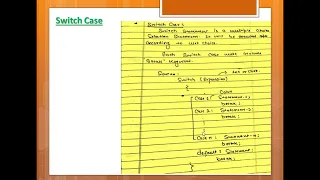 Switch Case
Switch Case :
Switch Statement is a multiple choice
Selection Statement. It will be executed
According to user choice.
Each Switch Case must include
break Keyword.
Syntax :
Switch (Expression)
{
Case 1 : Statement-1;
break;
Case 2 : Statement-2;
break;
Case n : Statement-n;
break;
default : Statement;
break;
}